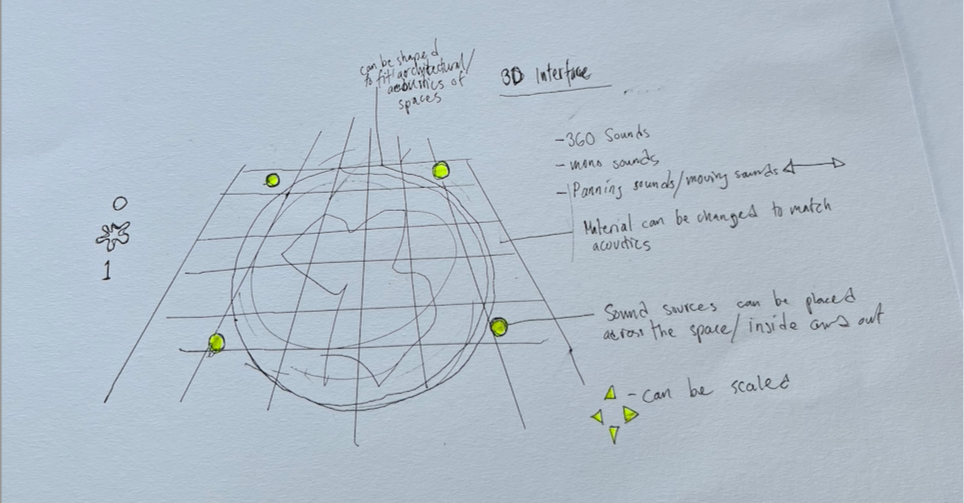 can be shaped
to fit architectural/
acoustics of
spaces
3D Interface
- 360 Sounds
- mono sounds
- Panning sounds/moving sounds
Material can be changed to match
acoustics
Sound sources can be placed
across the space/inside and out
- can be scaled
0
1